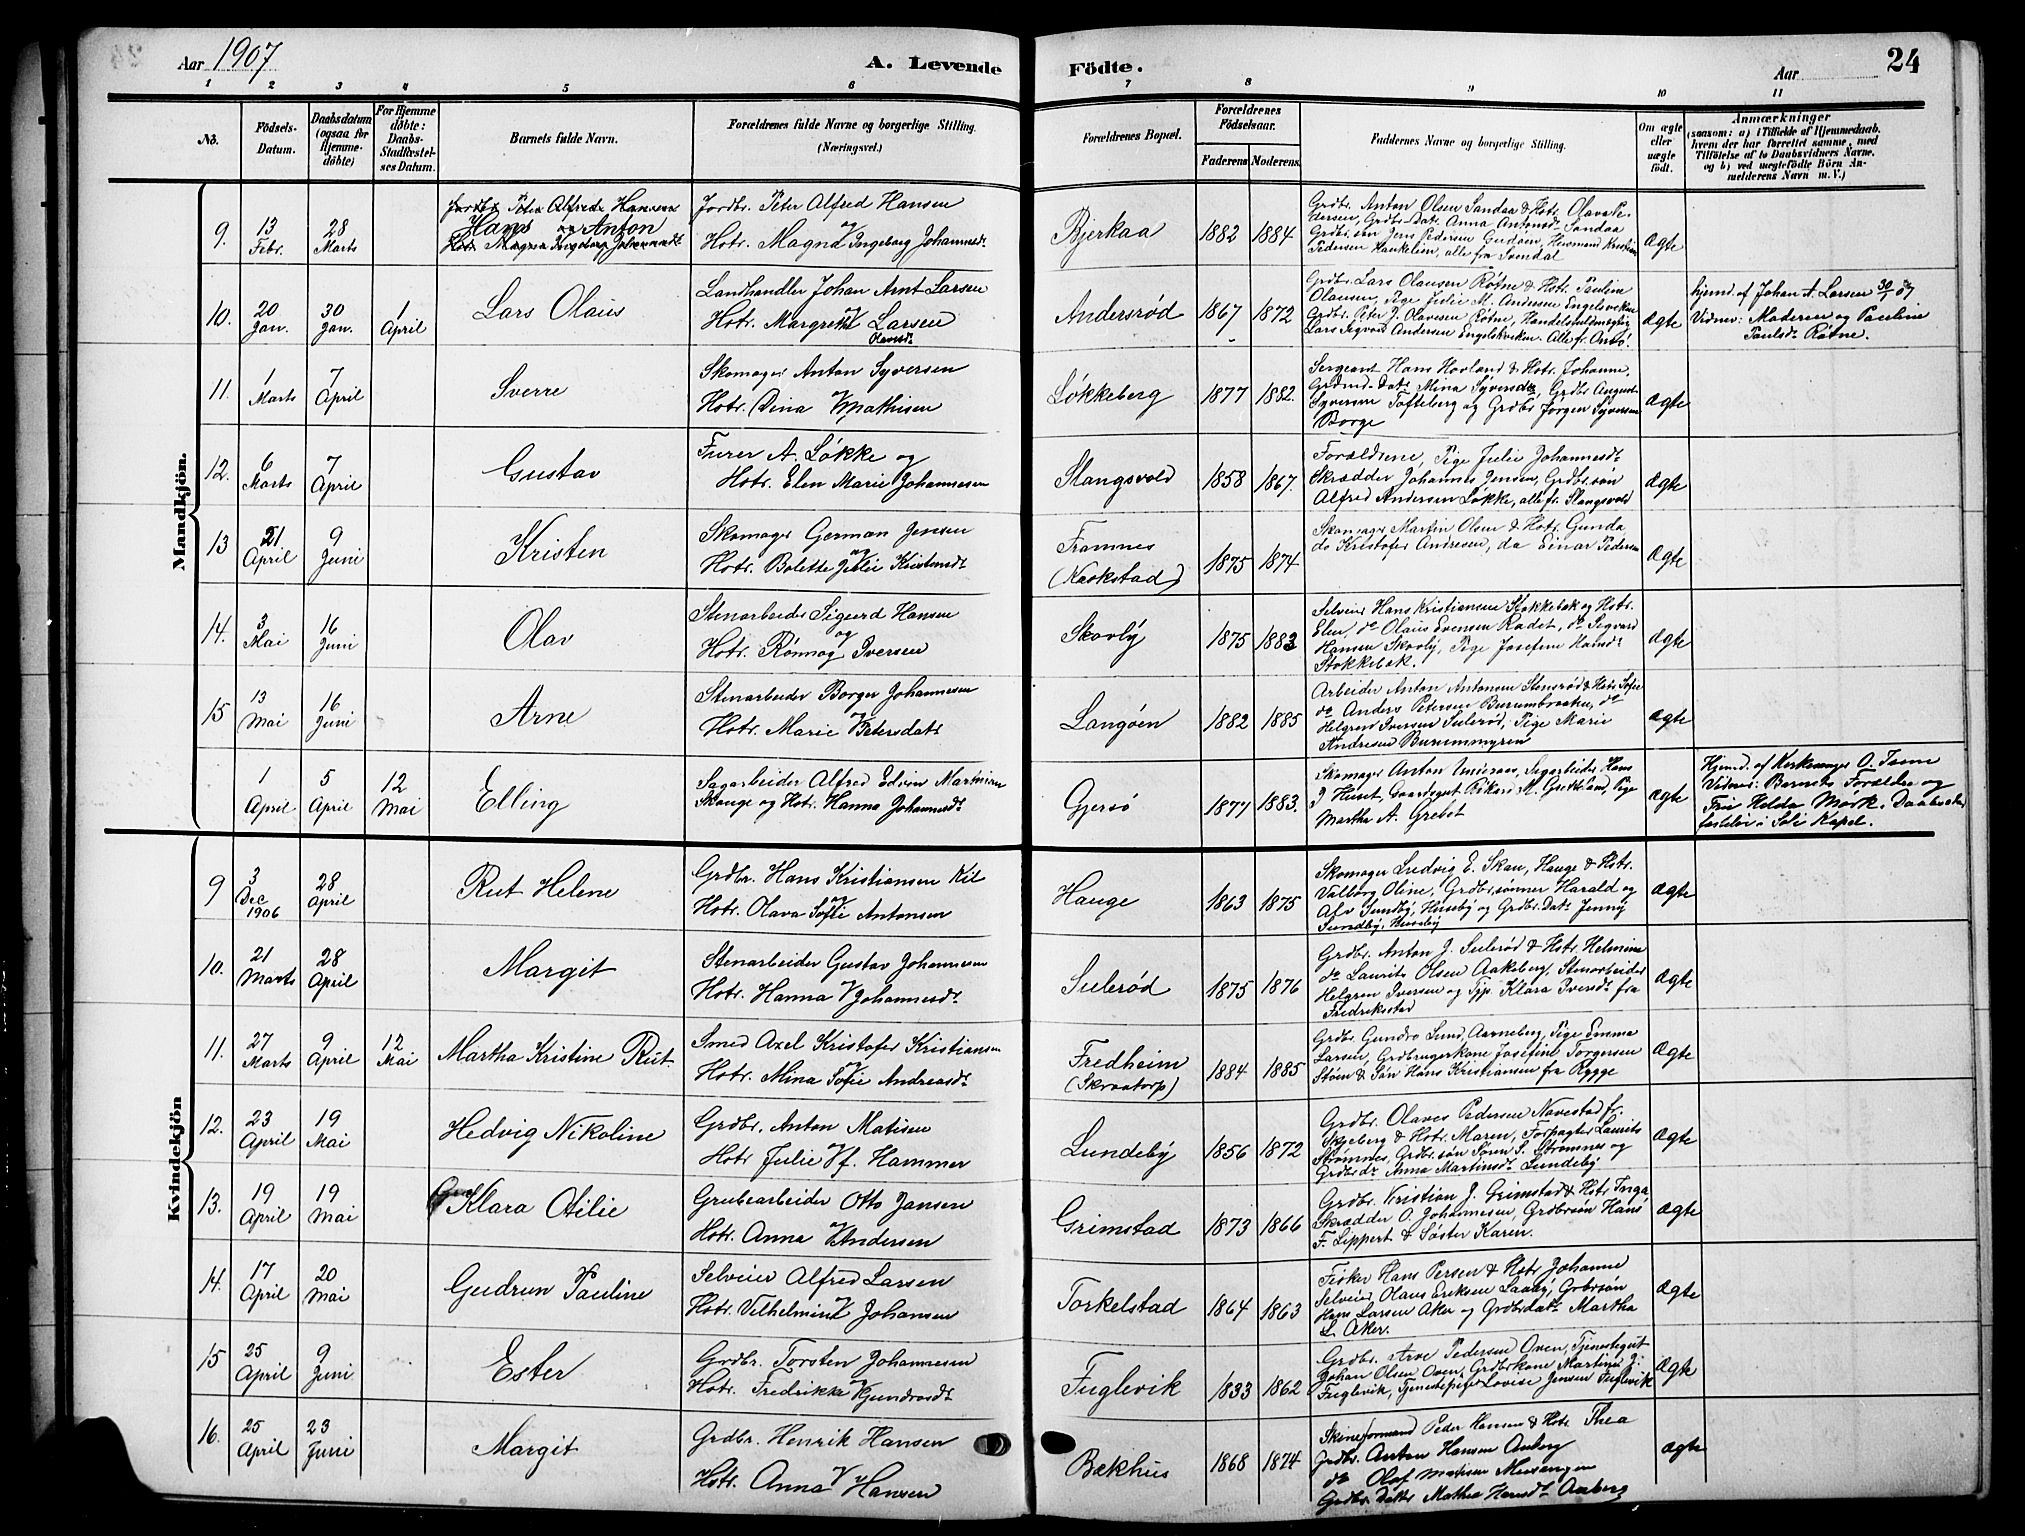 Aar 1907
A. Levende Födte.
Aar
24
1 2 3 4 5 6 7 8 9 10 11
No.
Födsels-Datum.
Daabsdatum (ogsaa for Hjemme-döbte)
For Hjemme döbte: Daabs-Stadfæstelses Datum.
Barnets fulde Navn.
Forældrenes fulde Navne og borgerlige Stilling. (Næringsvei.)
Forældrenes Bopæl.
Forældrenes Födselsaar.
Faderens Moderens
Faddernes Navne og borgerlige Stilling.
Om ægte eller uægte födt.
Anmærkninger
(saasom: a) i Tilfælde af Hjemmedaab, hvem der har forrettet samme, med Tilföielse af to Daabsvidners Navne, og b) ved uægtefödte Börn Anmelderens Navn m. V.)
Mandkjön.
9. 13 Febr. 28 Marts
Hans Anton
Jordbr. Peter Alfred Hansen
og Hstr. Magna Ingeborg Johannesdt
Bjerkaa 1882 1884
Grdbr. Anton Olsen Sandaa & Hstr. Olava Pe-
dersen, Grdbr. Datr. Anna Antonsdt Sandaa
Grdbr. søn Jens Pedersen Gudøen, Husmand Kristian
Pedersen Haukelien, alle fra Svendal
Ægte
10. 20 Jan. 30 Jan. 1 April
Lars Olaus
Landhandler Johan Arnt Larsen
og Hstr. Margrethe Larsen
Olavesdt
Andersrød 1867 1872
Grdbr. Lars Olausen Røtne & Hstr. Pauline
Olausen, Pige Julie M. Andersen Engelsviken
Grdbr. Peter J. Olavesen Røtne, Handelsfuldmægtig
Lars Sigvard Andersen Engelskviken. Alle fr. Onsø.
Ægte
hjemd. af Johan A. Larsen 30/1 07
Vidner: Moderen og Pauline
Paulsdt Røtne.
11. 1 Marts 7 April
Sverre
Skomager Anton Syversen
og Hstr. Dina Mathisen
Løkkeberg 1877 1882.
Sergeant Hans Hovland & Hstr. Johanne,
Grdmd. Datr. Mina Syversdtr, Grdbr August
Syversen Tofteberg og Grdbr Jørgen Syversen
Borge
Ægte
12. 6 Marts 7 April
Gustav
Furer A. Løkke og
Hstr. Elen Marie Johannesen
Slangsvold 1858 1867.
Forældrene, Pige Julie Johannesdt
Skrædder Johannes Jensen, Grdbr. søn
Alfred Andersen Løkke, alle fr. Slangsvold
Ægte
13 21 April 9 Juni
Kristen
Skomager German Jensen
og Hstr. Bolette Julie Kristensdt
Framnes 1875 1874
Skomager Martin Olsen & Hstr. Gunda
do Kristofer Andresen, do Einar Pedersen
Ægte
14. 3 Mai 16 Juni
Olav
Stenarbeider Sigurd Hansen
og
Hstr. Rønnog Iversen
Skovly 1875 1883
Selveier Hans Kristiansen Stokkebæk og Hstr.
Elen, do Olaus Evensen Radet, do Sigvard
Hansen Skovly, Pige Josefine Hansdt
Stokkebæk.
Ægte
15 13 Mai 16 Juni
Arne
Stenarbeider Borger Johannesen
og Hstr. Marie Petersdatr
Langøen 1882 1885
Arbeider Anton Antonsen Stensrød & Hstr. Sofie
do Anders Petersen Burumbraaten, do
Helgren Iversen Sulerød, Pige Marie
Andresen Burummyren
Ægte
1 April 5 April 12 Mai
Elling
Sagarbeider Alfred Edvin Martinsen
Skauge og Hstr. Hanna Johannesdt
Gjersø 1877 1883.
Skomager Anton, Sagarbeider Hans
J Huset, Gaardsgut Rikard M. Grekland, Pige
Martha A. Grebet
Ægte
Hjemd. af Kirkesanger O. Isene
Vidner: Barnets Forældre og
Fru Helda Mørk. Daabsstad-
fæstelse i Soli Kapel.
Kvindekjön
9 3 Dec 1906 28 April
Rut Helene
Grdbr. Hans Kristiansen Kil
og Hstr. Olava Sofie Antonsen
Hauge 1863 1875
Skomager Ludvig E. Skau, Hauge & Hstr.
Valborg Oline, Grdbr. sønner Harald og
Alv Sundby, Huseby og Grdbr. Datr. Jenny
Sundby, Huseby
Ægte
10. 21 Marts 28 April
Margit
Stenarbeider Gustav Johannesen
og Hstr. Hanna Johannesdt
Sulerød 1875 1876
Grdbr. Anton J. Sulerød & Hstr. Helmine
do Laurits Olsen Aakeberg, Stenarbeider
Helgren Iversen og Tjp. Klara Iversdt fra
Fredrikstad
Ægte
11. 27 Marts 9 April 12 Mai
Martha Kristine Rut.
Smed Axel Kristofer Kristiansen
og Hstr. Mina Sofie Andreasdt
Fredheim (Skraatorp) 1884 1885
Grdbr. Gundro Lund, Aarneberg, Pige Emma
Larsen, Grdbrugerkone Josefine Torgersen
Støen & Søn Hans Kristiansen fra Rygge
Ægte
12. 23 April 19 Mai
Hedvig Nikoline
Grdbr. Anton Matisen
og Hstr Julie f. Hammer
Lundeby 1856 1872
Grdbr. Olaves Pedersen Navestad fr.
Skjeberg & Hstr. Maren, Forpagter Laurits
Strømnes, Grdbr. søn Søren S. Strømnes og
Grdbr. dr. Anna Martinsdt Lundeby
Ægte
13. 19 April 19 Mai
Klara Otilie
Grubearbeider Otto Jansen
og Hstr. Anna Andersen
Grimstad 1873 1866
Grdbr. Kristian J. Grimstad & Hstr Inga
Skrædder O. Johannesen, Grdbrsøn Hans
F. Lippert & Søster Karen.
Ægte
14. 17 April 20 Mai
Gudrun Pauline
Selveier Alfred Larsen
og Hstr. Vilhelmine Johansen
Torkelstad 1864 1863
Fisker Hans Persen & Hstr Johanne
Selveier Olaus Eriksen Laaby, Grbrsøn
Hans Larsen Aker og Grdbrdatr Martha
L. Aker.
Ægte
15 25 April 9 Juni
Ester
Grdbr. Torsten Johannesen
og Hstr. Fredrikke Gundrosdt
Fuglevik 1833 1862
Grdbr. Arve Pedersen Oven, Tjenestegut
Johan Olsen Oven, Grdbrkone Martine J.
Fuglevik, Tjenestepige Lovise Jensen Fuglevik
Ægte
16. 25 April 23 Juni
Margit
Grdbr. Henrik Hansen
og Hstr. Anna Hansen
Bækhus 1868 1874
Skineformand Peder Hansen & Hstr. Thea
Grdbr. Anton Hansen Aaberg
do Olaf Matisen
Grdbr. Datter Mathea Hansdt Aaberg
Ægte